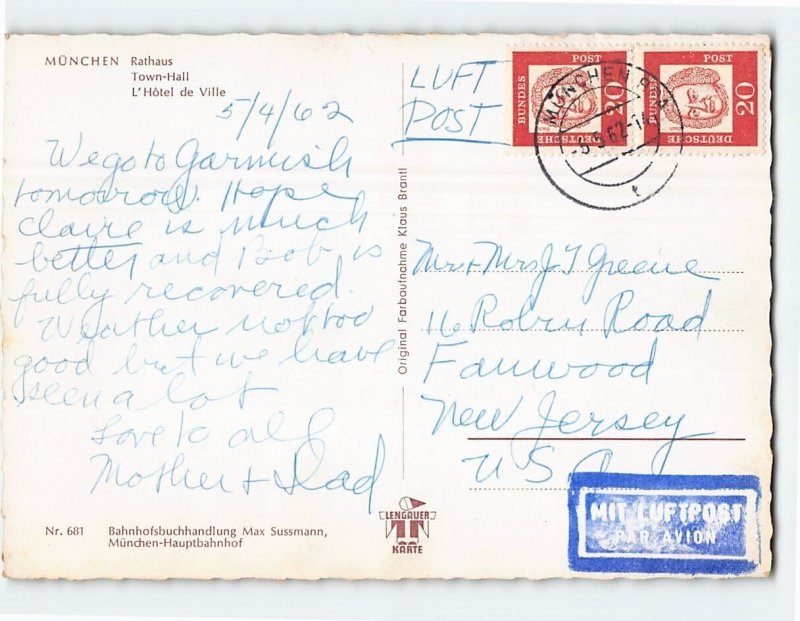 MÜNCHEN Rathaus
Town-Hall
L'Hôtel de Ville
5/4/62
We go to Garmish
tomorrow. Hope
Claire is much
better and Bob is
fully recovered.
Weather not too
good but we have
seen a lot
Love to all
Mother + Dad
Nr. 681 Bahnhofsbuchhandlung Max Sussmann,
München-Hauptbahnhof
Original Farbaufnahme Klaus Brantl
LENGAUER
KARTE
LUFT
POST
DEUTSCHE BUNDES POST 20
DEUTSCHE BUNDES POST 20
MÜNCHEN
Mr + Mrs J T Greene
16 Robin Road
Fanwood
New Jersey
USA
MIT LUFTPOST
PAR AVION